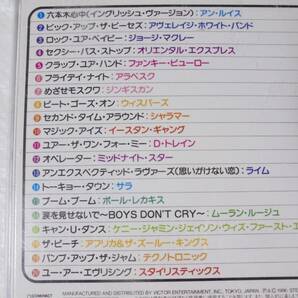 ①六本木心中(イングリッシュ・ヴァージョン):アン・ルイス
②ピック・アップ・ザ・ピーセズ:アヴェレイジ・ホワイト・バンド
③ロック・ユア・ベイビー:ジョージ・マックレー
④セクシー・バス・ストップ:オリエンタル・エクスプレス
⑤クラップ・ユア・ハンド:ファンキー・ビューロー
⑥フライデイ・ナイト:アラベスク
⑦めざせモスクワ:ジンギスカン
⑧ビート・ゴーズ・オン:ウィスパーズ
⑨セカンド・タイム・アラウンド:シャラマー
⑩マジック・アイズ:イースタン・ギャング
⑪ユアー・ザ・ワン・フォー・ミー:D・トレイン
⑫オペレーター:ミッドナイト・スター
⑬アンエクスペクティッド・ラヴァーズ(思いがけない恋):ライム
⑭トーキョー・タウン:サラ
⑮ブーム・ブーム:ポール・レカキス
⑯涙を見せないで〜BOYS DON'T CRY〜:ムーラン・ルージュ
⑰キャン・U・ダンス:ケニー・ジャミン・ジェイソン・ウィズ・ファースト・エ
⑱ザ・ピーチ:アフリカ&ザ・ズールー・キングス
⑲パンプ・アップ・ザ・ジャム:テクノトロニック
⑳ユー・アー・エヴリシング:スタイリスティックス
MANUFACTURED AND DISTRIBUTED BY VICTOR ENTERTAINMENT, INC., TOKYO, JAPAN.